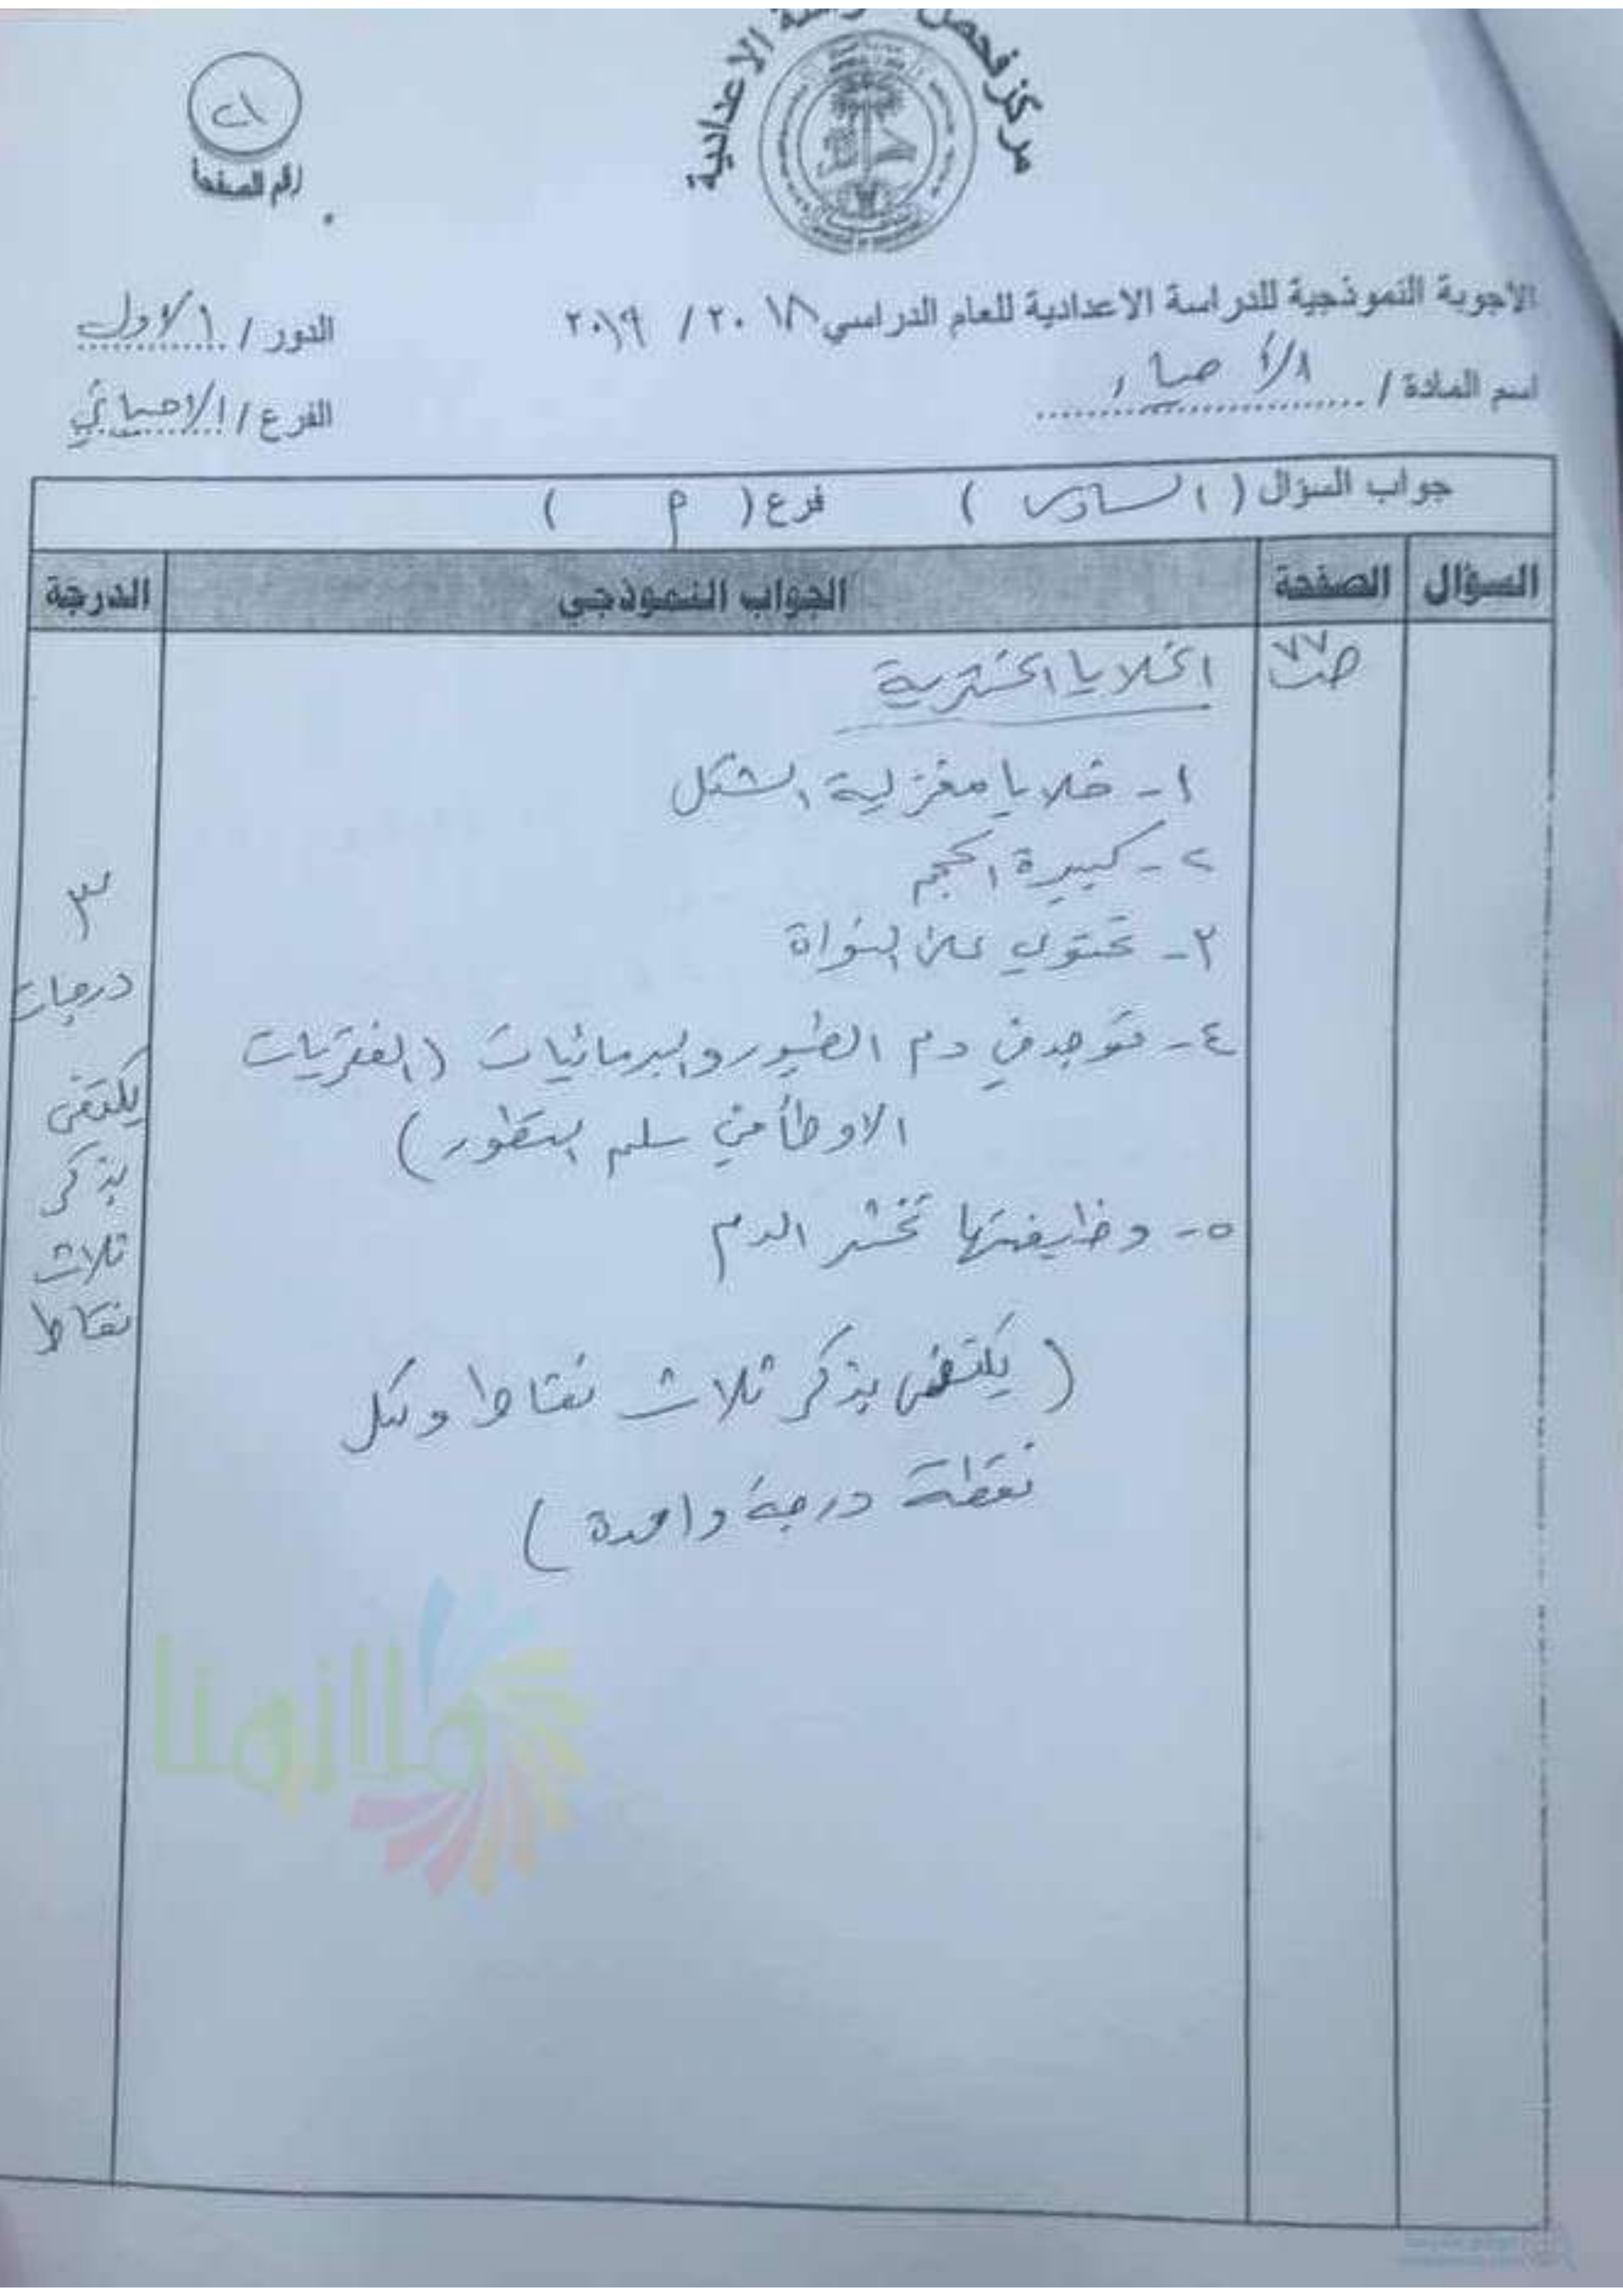 مركز فحص الدراسة الاعدادية
٢١
رقم الصفحة
الاجوبة النموذجية للدراسة الاعدادية للعام الدراسي ٢٠١٨ / ٢٠١٩
الدور / الاول
اسم المادة / الأحياء
الفرع / الاحيائي
جواب السؤال ( السادس ) فرع ( م )
السؤال الصفحة الجواب النموذجي الدرجة
ص٧٧
الخلايا الخثرية
١- خلايا مغزلية الشكل
٢- كبيرة الحجم
٣- تحتوي على النواة
٤- توجد في دم الطيور والبرمائيات (الفقريات
الاوطأ في سلم التطور)
٥- وظيفتها تخثر الدم
( يكتفى بذكر ثلاث نقاط ولكل
نقطة درجة واحدة )
٣
درجات
يكتفى
بذكر
ثلاث
نقاط
ملازمنا